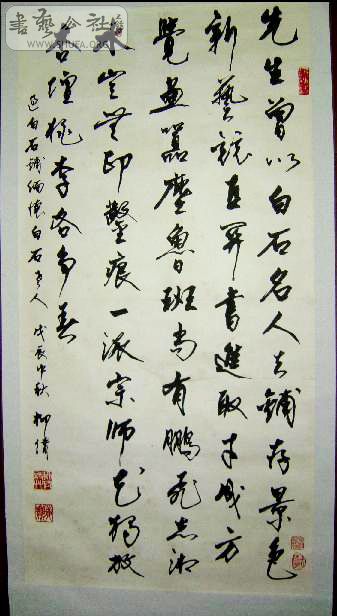 書藝公社
WWW.SHUFA.ORG
先生曾以白石名人去鋪存景色
新藝書進取才成方
覺畫囂塵魯班尚有鵬飛志湘
水豈無印鑿痕一派宗師花獨放
杏壇桃李各爭春
過白石鋪緬懷白石老人 戊辰中秋 柳倩